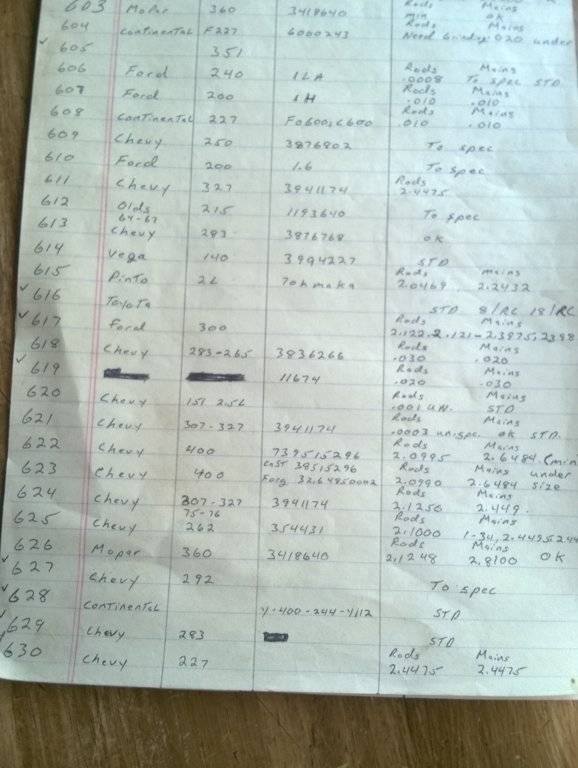 603 Mopar 360 3418640 Rods Mains
min OK
604 Continental F227 6000243 Need Grinding .020 under
605 351
606 Ford 240 1LA Rods Mains
.0008 To spec STD
607 Ford 200 1H Rods Mains
.010 .010
608 Continental 227 F0600,C600 Rods Mains
.010 .010
609 Chevy 250 3876802 To spec
610 Ford 200 1.6 To spec
611 Chevy 327 3941174 Rods
2.4475
612 Olds 215 1193640 To spec
64-67
613 Chevy 283 3876768 OK
614 Vega 140 3994227 STD
615 Pinto 2L Rods Mains
2.0469 2.2432
616 Toyota STD 8/RC 18/RC
617 Ford 300 Rods Mains
2.122-2.121- 2.3975,2.398
618 Chevy 283-265 3836266 Rods Mains
.030 .020
619 11674 Rods Mains
.020 .030
620 Chevy 151 2.5L Rods Mains
.001 UN. STD
621 Chevy 307-327 3941174 Rods Mains
.0003 un.spec OK STD.
622 Chevy 400 739515296 Rods Mains
2.0995 2.6484 (min
623 Chevy 400 Cast 38515296 Rods Mains under
Forg 32.64850002 2.0990 2.6484 size
624 Chevy 307-327 3941174 Rods Mains
2.1250 2.449.
625 Chevy 75-76 262 354431 Rods Mains
2.1000
626 Mopar 360 3418640 Rods Mains
2.1248 2.8100 OK
627 Chevy 292 To spec
628 Continental Y-400-244-4112 STD
629 Chevy 283 STD
630 Chevy 227 Rods Mains
2.4475 2.4475